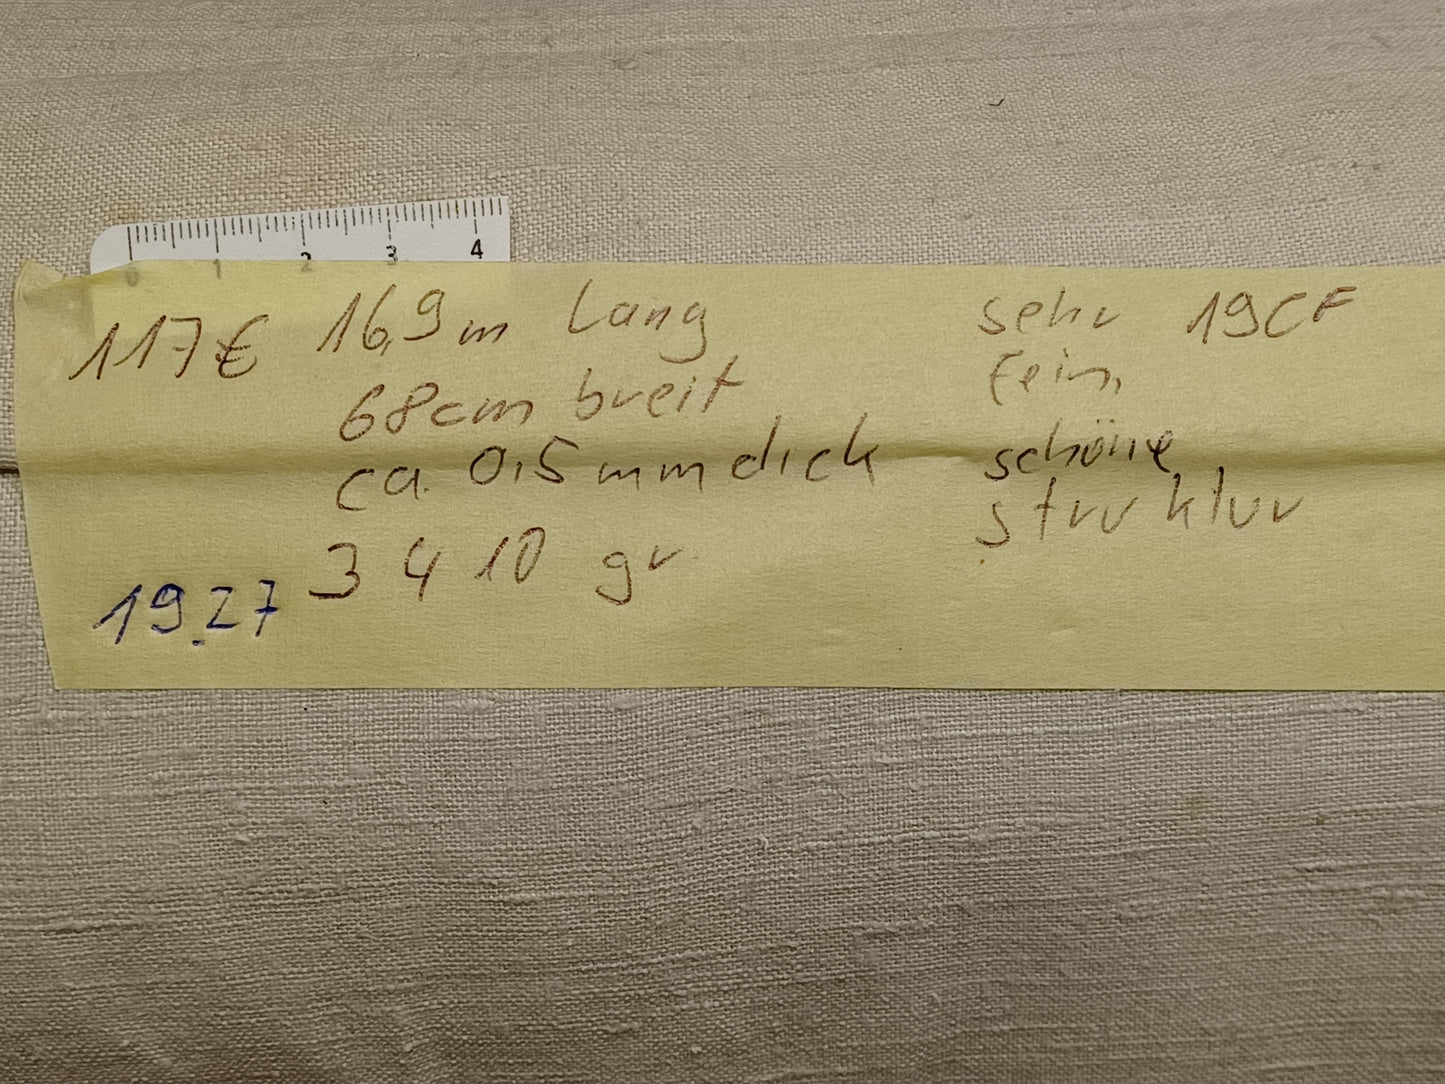 0 1 2 3 4
117€ 16,9m lang sehr 19CF
68cm breit fein,
ca. 0,5mm dick schöne
struktur
3410 gr
19.27